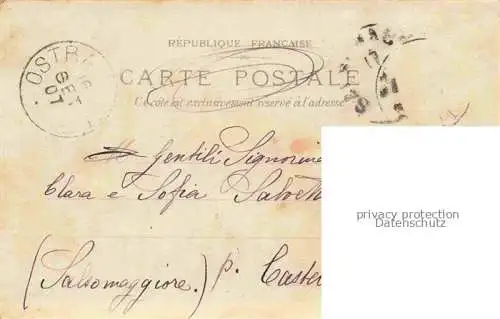 RÉPUBLIQUE FRANÇAISE
CARTE POSTALE
Ce côté est exclusivement réservé à l'adresse
OSTR
16
GE
07
17
Gentili Signorine
Clara e Sofia
(Salsomaggiore.) p. Caste
privacy protection
Datenschutz